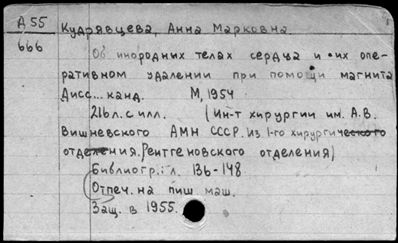 Д 55
666
Кудрявцева, Анна Марковна.
Об инородных телах сердца и их опе-
ративном удалении при помощи магнита
Дисс... канд. М, 1954
216 л. с илл. (Ин-т хирургии им. А.В.
Вишневского АМН СССР. Из 1-го хирургического
отделения. Рентгеновского отделения)
Библиогр.: л. 136-148
(Отпеч. на пиш маш.
Защ. в 1955.